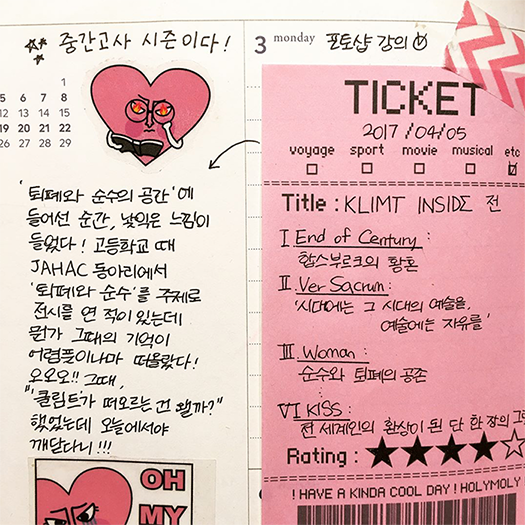 중간고사 시즌이다!
1
5 6 7 8
12 13 14 15
19 20 21 22
26 27 28 29
'퇴폐와 순수의 공간'에
들어선 순간, 낯익은 느낌이
들었다! 고등학교 때
JAHAC 동아리에서
'퇴폐와 순수'를 주제로
전시를 연 적이 있는데
뭔가 그때의 기억이
어렴풋이나마 떠올랐다!
오오오!! 그때,
"'클림트가 떠오르는 건 왤까?"
했었는데 오늘에서야
깨닫다니!!!
OH
MY
3 monday 포토샵 강의
TICKET
2017 / 04 / 05
voyage sport movie musical etc
Title : KLIMT INSIDE 전
I End of Century :
합스부르크의 황혼
II Ver Sacrum :
'시대에는 그 시대의 예술을,
예술에는 자유를'
III Woman :
순수와 퇴폐의 공존
VI KISS :
전 세계인의 환상이 된 단 한 장의
Rating : ★★★★☆
! HAVE A KINDA COOL DAY ! HOLYMOLY